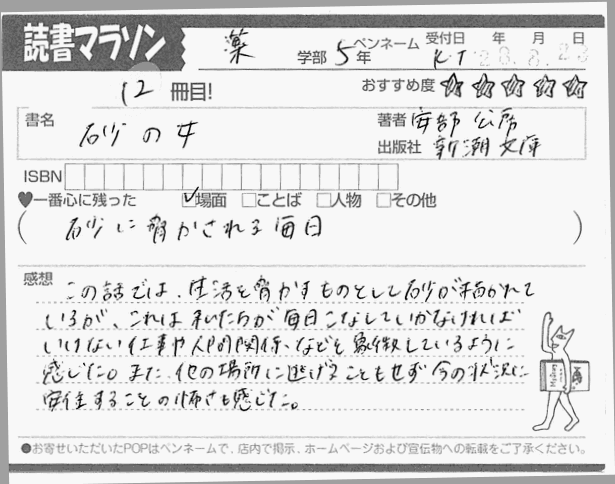 読書マラソン
薬 学部 5年 ペンネーム K.T 受付日 年 月 日
12 冊目! おすすめ度 ☆☆☆☆☆
書名 砂の女 著者 安部 公房
出版社 新潮文庫
ISBN
♥一番心に残った ☑場面 □ことば □人物 □その他
( 砂に脅かされる毎日 )
感想 この話では、生活を脅かすものとして砂が描かれて
いるが、これは私たちが毎日こなしていかなければ
いけない仕事や人間関係、などを象徴しているように
感じた。また、他の場所に逃げることもせず今の状況に
安住することの怖さも感じた。
●お寄せいただいたPOPはペンネームで、店内で掲示、ホームページおよび宣伝物への転載をご了承ください。